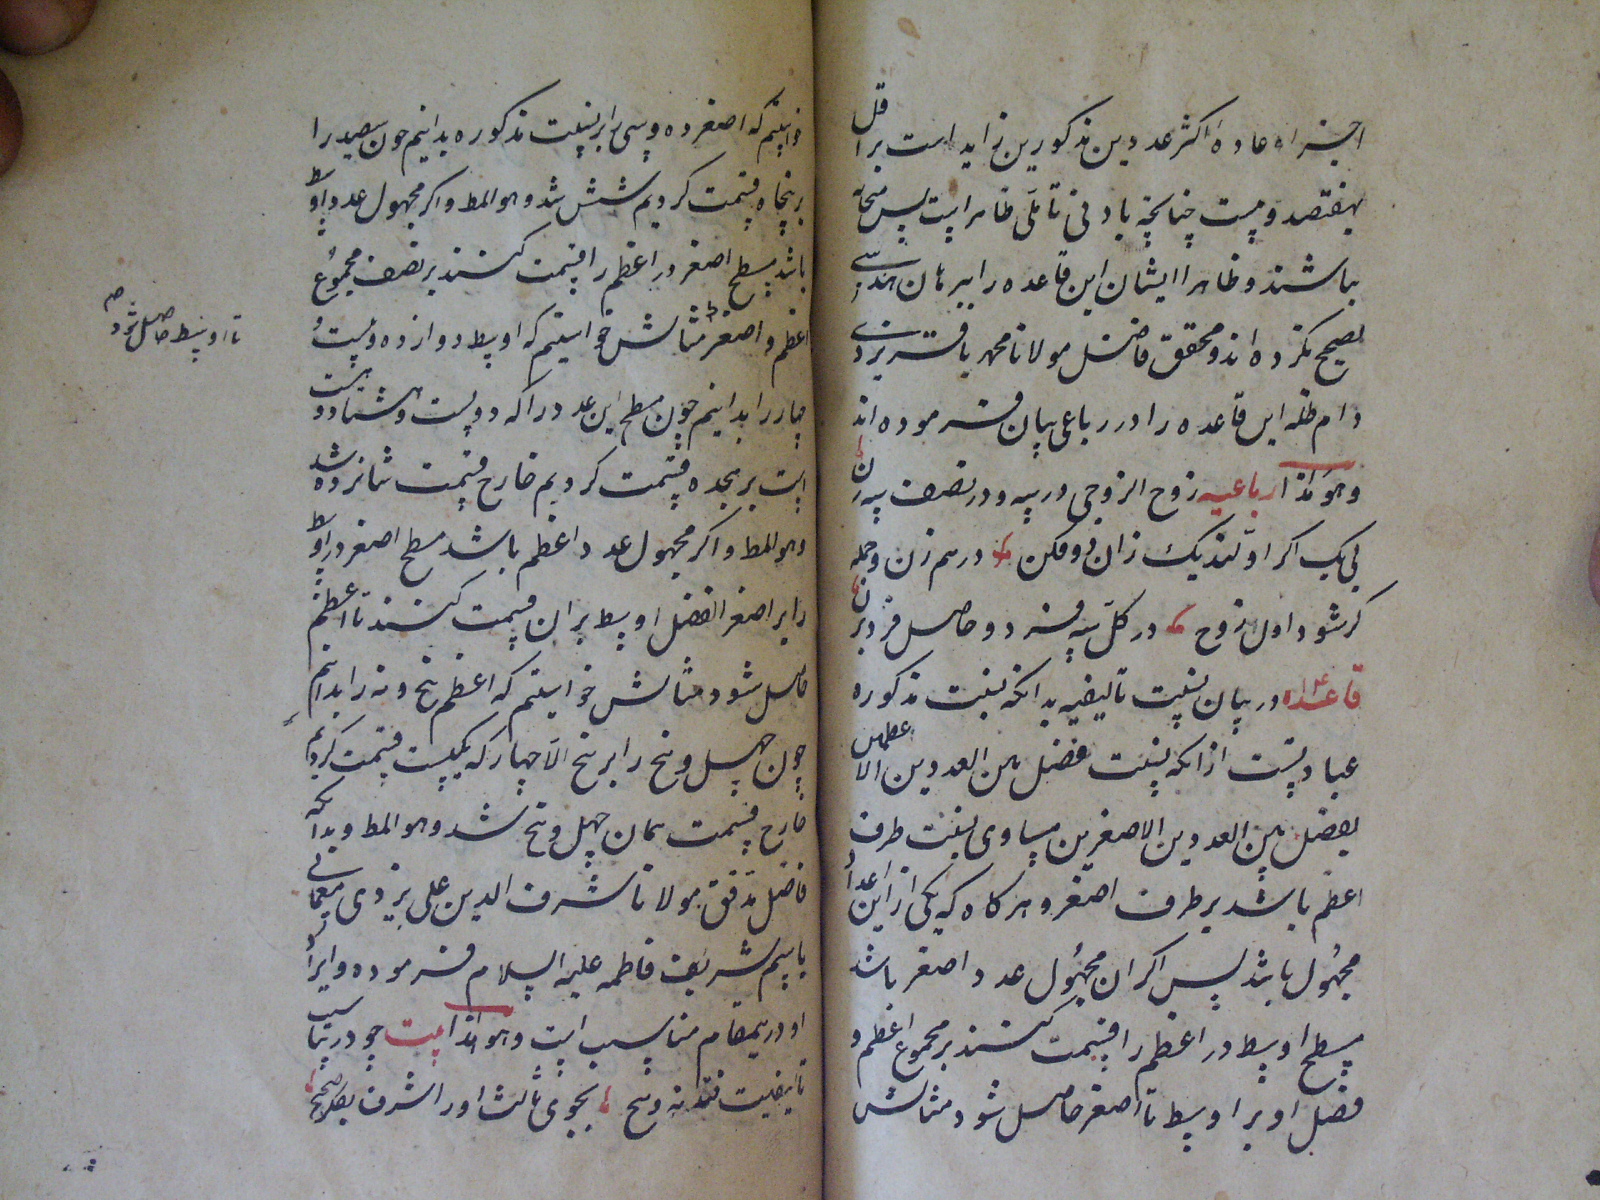 اجزاء عاده اکثر عددین مذکورین زاید است بر اقل
بهفتصد و بیست چنانچه بادنی تاملی ظاهر است پس متحابه
نباشند و ظاهرا ایشان این قاعده را ببرهان هندسی
تصحیح نکرده اند و محقق فاضل مولانا محمد باقر یزدی
دام ظله این قاعده را در رباعی بیان فرموده اند
وهو هذا رباعیه زوج الزوجی در سه و در نصف سه زن
بی یک اکر اولند یک زان دو فکن در هم زن و جمله
کر شود اول زوج در کل سه فرد و حاصل فرد بزن
قاعده در بیان نسبت تالیفیه بدانکه نسبت مذکوره
عبارتست از انکه نسبت فضل بین العددین الاعظمین
بفضل بین العددین الاصغرین مساوی نسبت طرف
اعظم باشد بر طرف اصغر و هر کاه که یکی از این اعداد
مجهول باشد پس اکر ان مجهول عدد اصغر باشد
مسطح اوسط در اعظم را قسمت کنند بر مجموع اعظم و
فضل او بر اوسط تا اصغر حاصل شود مثالش
خواستم که اصغر ده و سی را بر نسبت مذکوره بدانیم چون سیصد را
بر پنجاه قسمت کردیم شش شد وهو المط و اکر مجهول عدد اوسط
باشد مسطح اصغر در اعظم را قسمت کنند بر نصف مجموع
اعظم و اصغر مثالش خواستیم که اوسط دوازده و بیست
تا اوسط حاصل شود صح
چهار را بدانیم چون مسطح این عدد را که دویست و هشتاد و هشت
است بر هجده قسمت کردیم خارج قسمت شانزده شد
وهو المط و اکر مجهول عدد اعظم باشد مسطح اصغر در اوسط
را بر اصغر الا فضل اوسط بر ان قسمت کنند تا اعظم
حاصل شود مثالش خواستیم که اعظم پنج و نه را بدانیم
چون چهل و پنج را بر پنج الا چهار که یکیست قسمت کردیم
خارج قسمت همان چهل و پنج شد وهو المط و بدانکه
فاضل مدقق مولانا شرف الدین علی یزدی معمائی
باسم شریف فاطمه علیه السلام فرموده و ایراد
او در یمقام مناسب است وهو هذا بیت چو در تناسب
تالیفیت فتد نه و پنج بجوی ثالث او را شرف بفکر صحیح